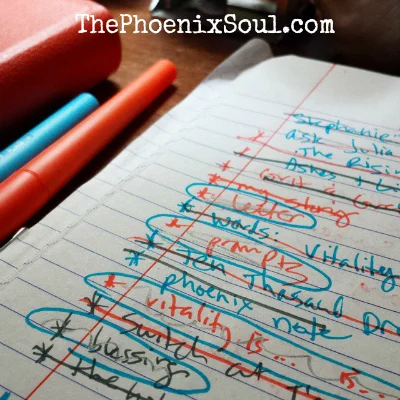 ThePhoenixSoul.com
Stephenie
* ask Julia
* The Risin
* Ashes + Li
* write a
* my stories
* letter
* words: Vitality
prompts
* Ten Thousand Dr
* phoenix note
* vitality is... is...
* Switch at Th
* blessing
* the